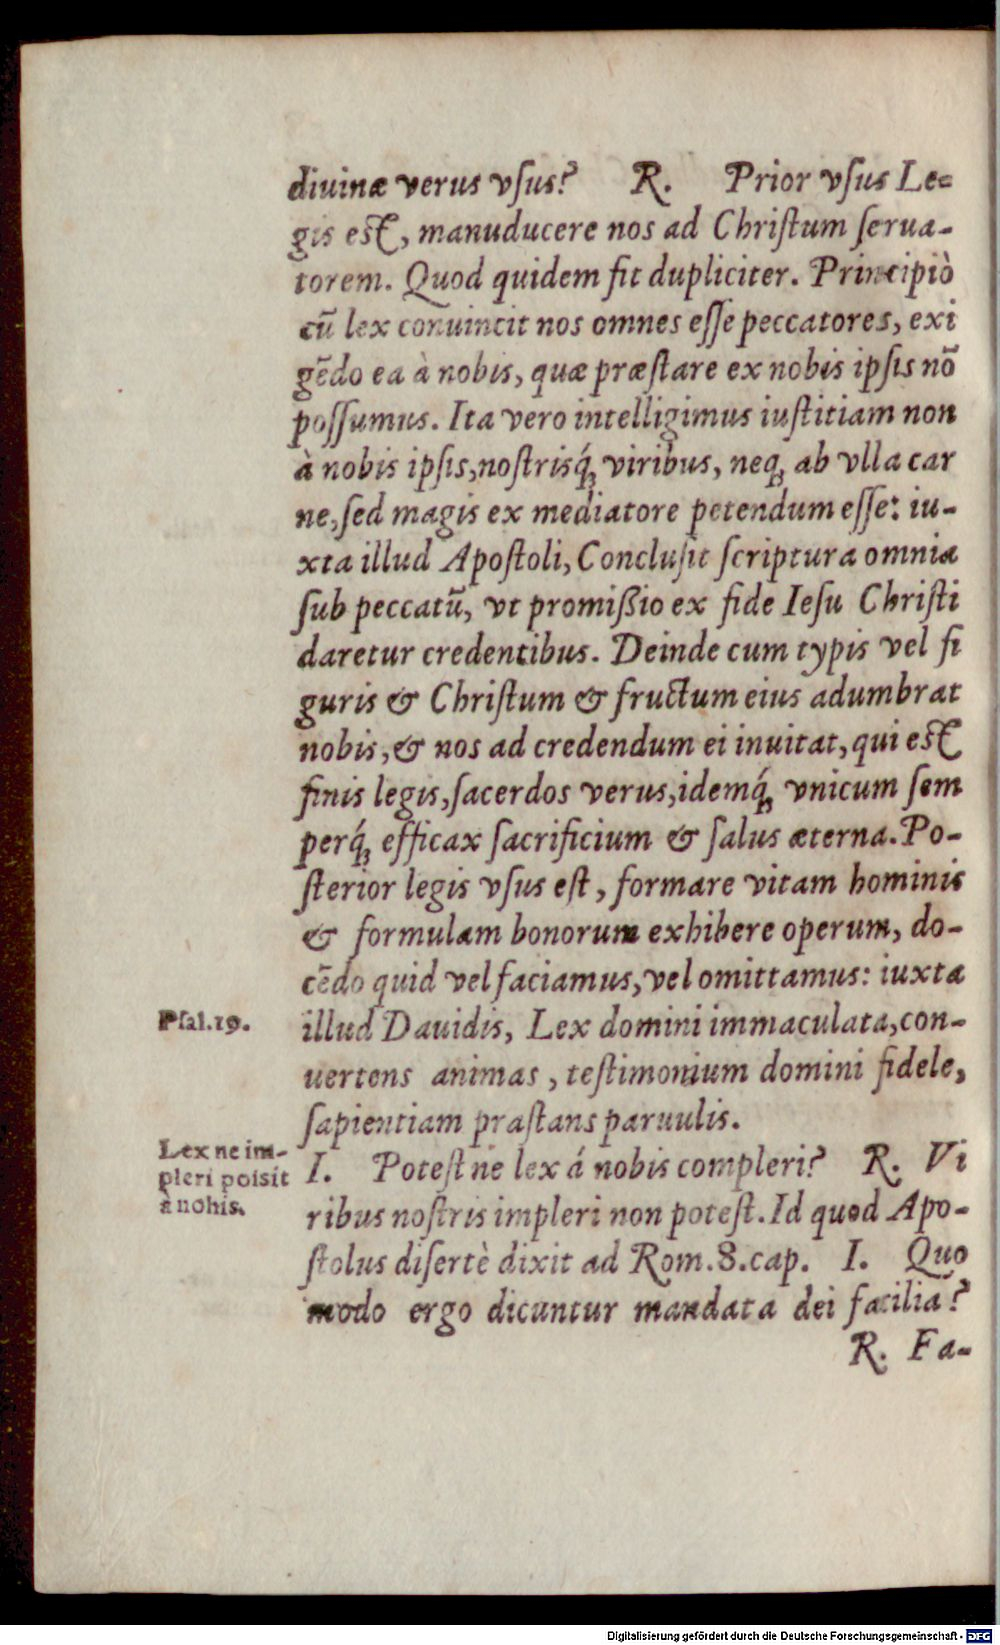 diuinæ verus vſus? R. Prior vſus Le=
gis eſt, manuducere nos ad Chriſtum ſerua-
torem. Quod quidem fit dupliciter. Principiò
cũ lex conuincit nos omnes eſſe peccatores, exi
gẽdo ea à nobis, quæ præſtare ex nobis ipſis nõ
poſſumus. Ita vero intelligimus iuſtitiam non
à nobis ipſis, noſtrisq́; viribus, neq; ab vlla car
ne, ſed magis ex mediatore petendum eſſe: iu-
xta illud Apoſtoli, Concluſit ſcriptura omnia
ſub peccatũ, vt promißio ex fide Ieſu Chriſti
daretur credentibus. Deinde cum typis vel fi
guris & Chriſtum & fructum eius adumbrat
nobis, & nos ad credendum ei inuitat, qui eſt
finis legis, ſacerdos verus, idemq́; vnicum ſem
perq́; efficax ſacrificium & ſalus æterna. Po-
ſterior legis vſus eſt, formare vitam hominis
& formulam bonorum exhibere operum, do-
cẽdo quid vel faciamus, vel omittamus: iuxta
Pſal.19.
illud Dauidis, Lex domini immaculata, con-
uertens animas, teſtimonium domini fidele,
ſapientiam praſtans paruulis.
Lex ne im-
pleri poſsit
à nobis.
I. Poteſt ne lex á nobis compleri? R. Vi
ribus noſtris impleri non poteſt. Id quod Apo-
ſtolus diſertè dixit ad Rom. 8. cap. I. Quo
modo ergo dicuntur mandata dei facilia?
R. Fa-
Digitalisierung gefördert durch die Deutsche Forschungsgemeinschaft - DFG